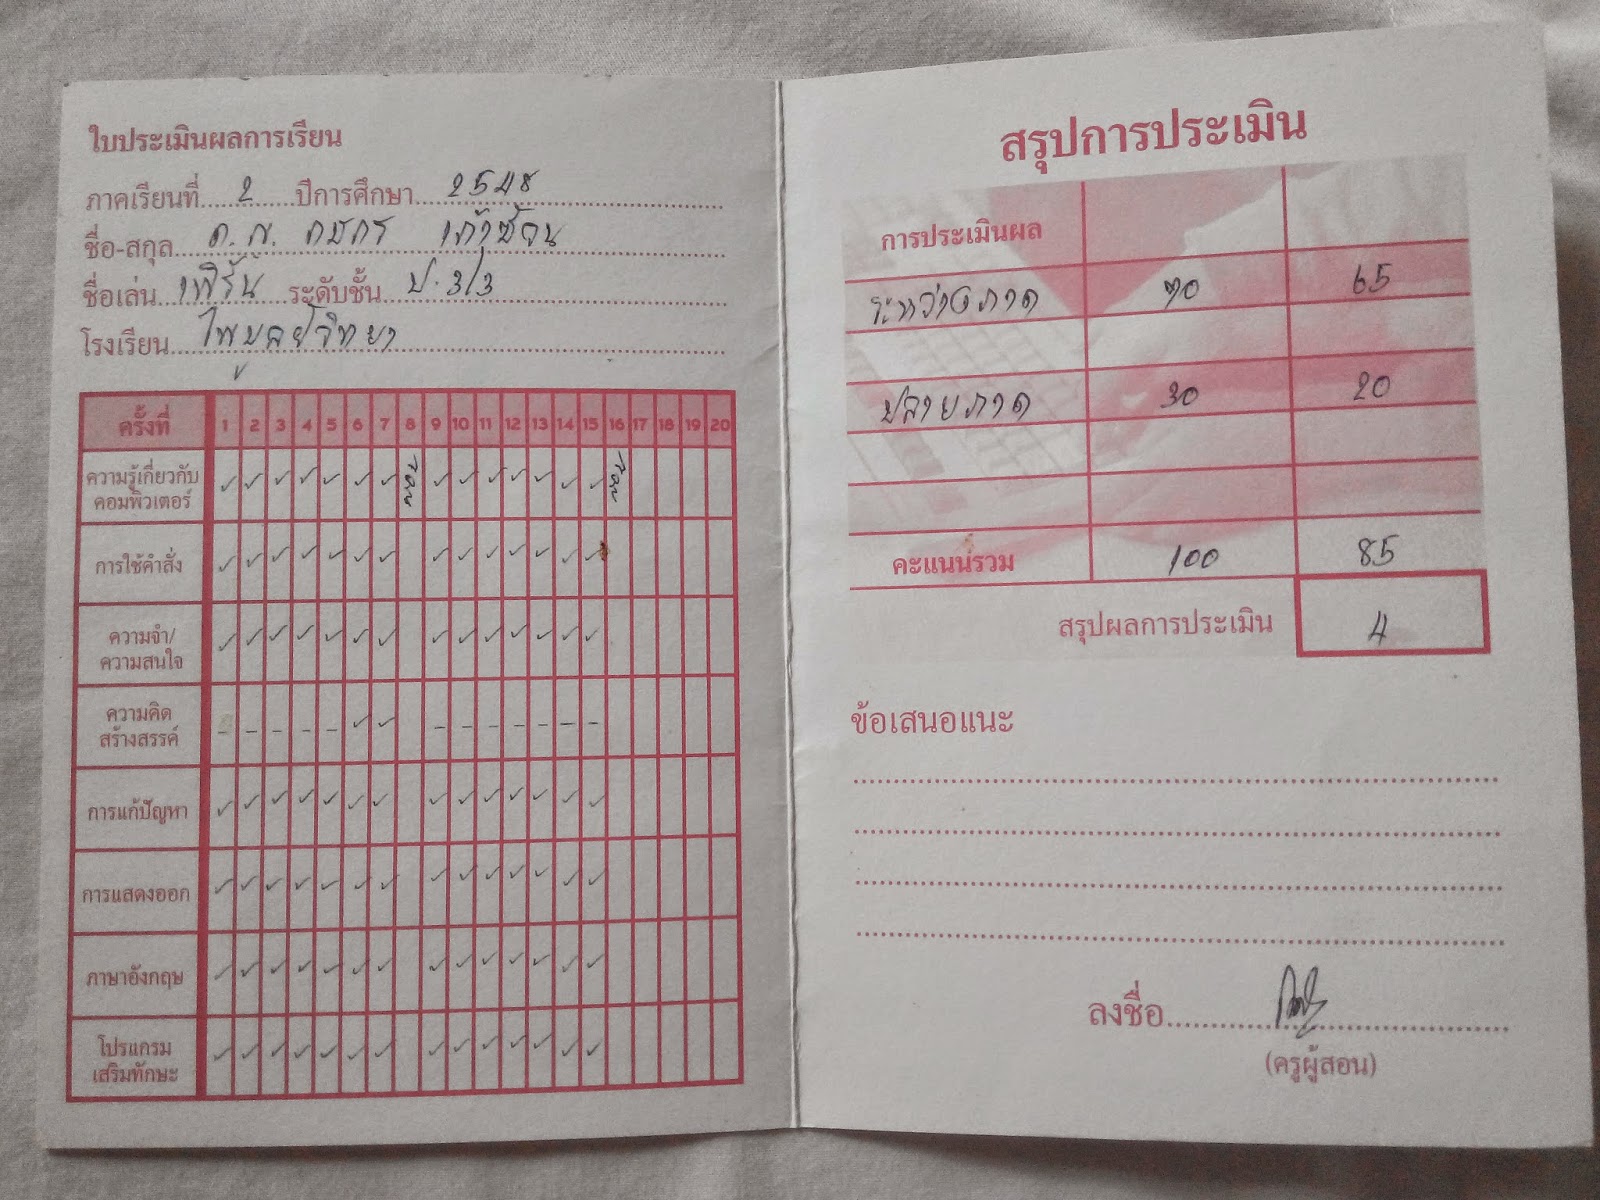 ใบประเมินผลการเรียน
ภาคเรียนที่ 2 ปีการศึกษา 2548
ชื่อ-สกุล ด.ญ. กมกร
ชื่อเล่น เฟิร์น ระดับชั้น ป.3/3
โรงเรียน ไพบูลย์วิทยา
ครั้งที่ 1 2 3 4 5 6 7 8 9 10 11 12 13 14 15 16 17 18 19 20
ความรู้เกี่ยวกับ
คอมพิวเตอร์ ✓ ✓ ✓ ✓ ✓ ✓ ✓ สอบ ✓ ✓ ✓ ✓ ✓ ✓ ✓ สอบ
การใช้คำสั่ง ✓ ✓ ✓ ✓ ✓ ✓ ✓ ✓ ✓ ✓ ✓ ✓ ✓ ✓
ความจำ/
ความสนใจ ✓ ✓ ✓ ✓ ✓ ✓ ✓ ✓ ✓ ✓ ✓ ✓ ✓ ✓
ความคิด
สร้างสรรค์ - - - - - ✓ ✓ - - - - - - -
การแก้ปัญหา ✓ ✓ ✓ ✓ ✓ ✓ ✓ ✓ ✓ ✓ ✓ ✓ ✓ ✓
การแสดงออก ✓ ✓ ✓ ✓ ✓ ✓ ✓ ✓ ✓ ✓ ✓ ✓ ✓ ✓
ภาษาอังกฤษ ✓ ✓ ✓ ✓ ✓ ✓ ✓ ✓ ✓ ✓ ✓ ✓ ✓ ✓
โปรแกรม
เสริมทักษะ ✓ ✓ ✓ ✓ ✓ ✓ ✓ ✓ ✓ ✓ ✓ ✓ ✓ ✓
สรุปการประเมิน
การประเมินผล
ระหว่างภาค 70 65
ปลายภาค 30 20
คะแนนรวม 100 85
สรุปผลการประเมิน 4
ข้อเสนอแนะ
ลงชื่อ
(ครูผู้สอน)